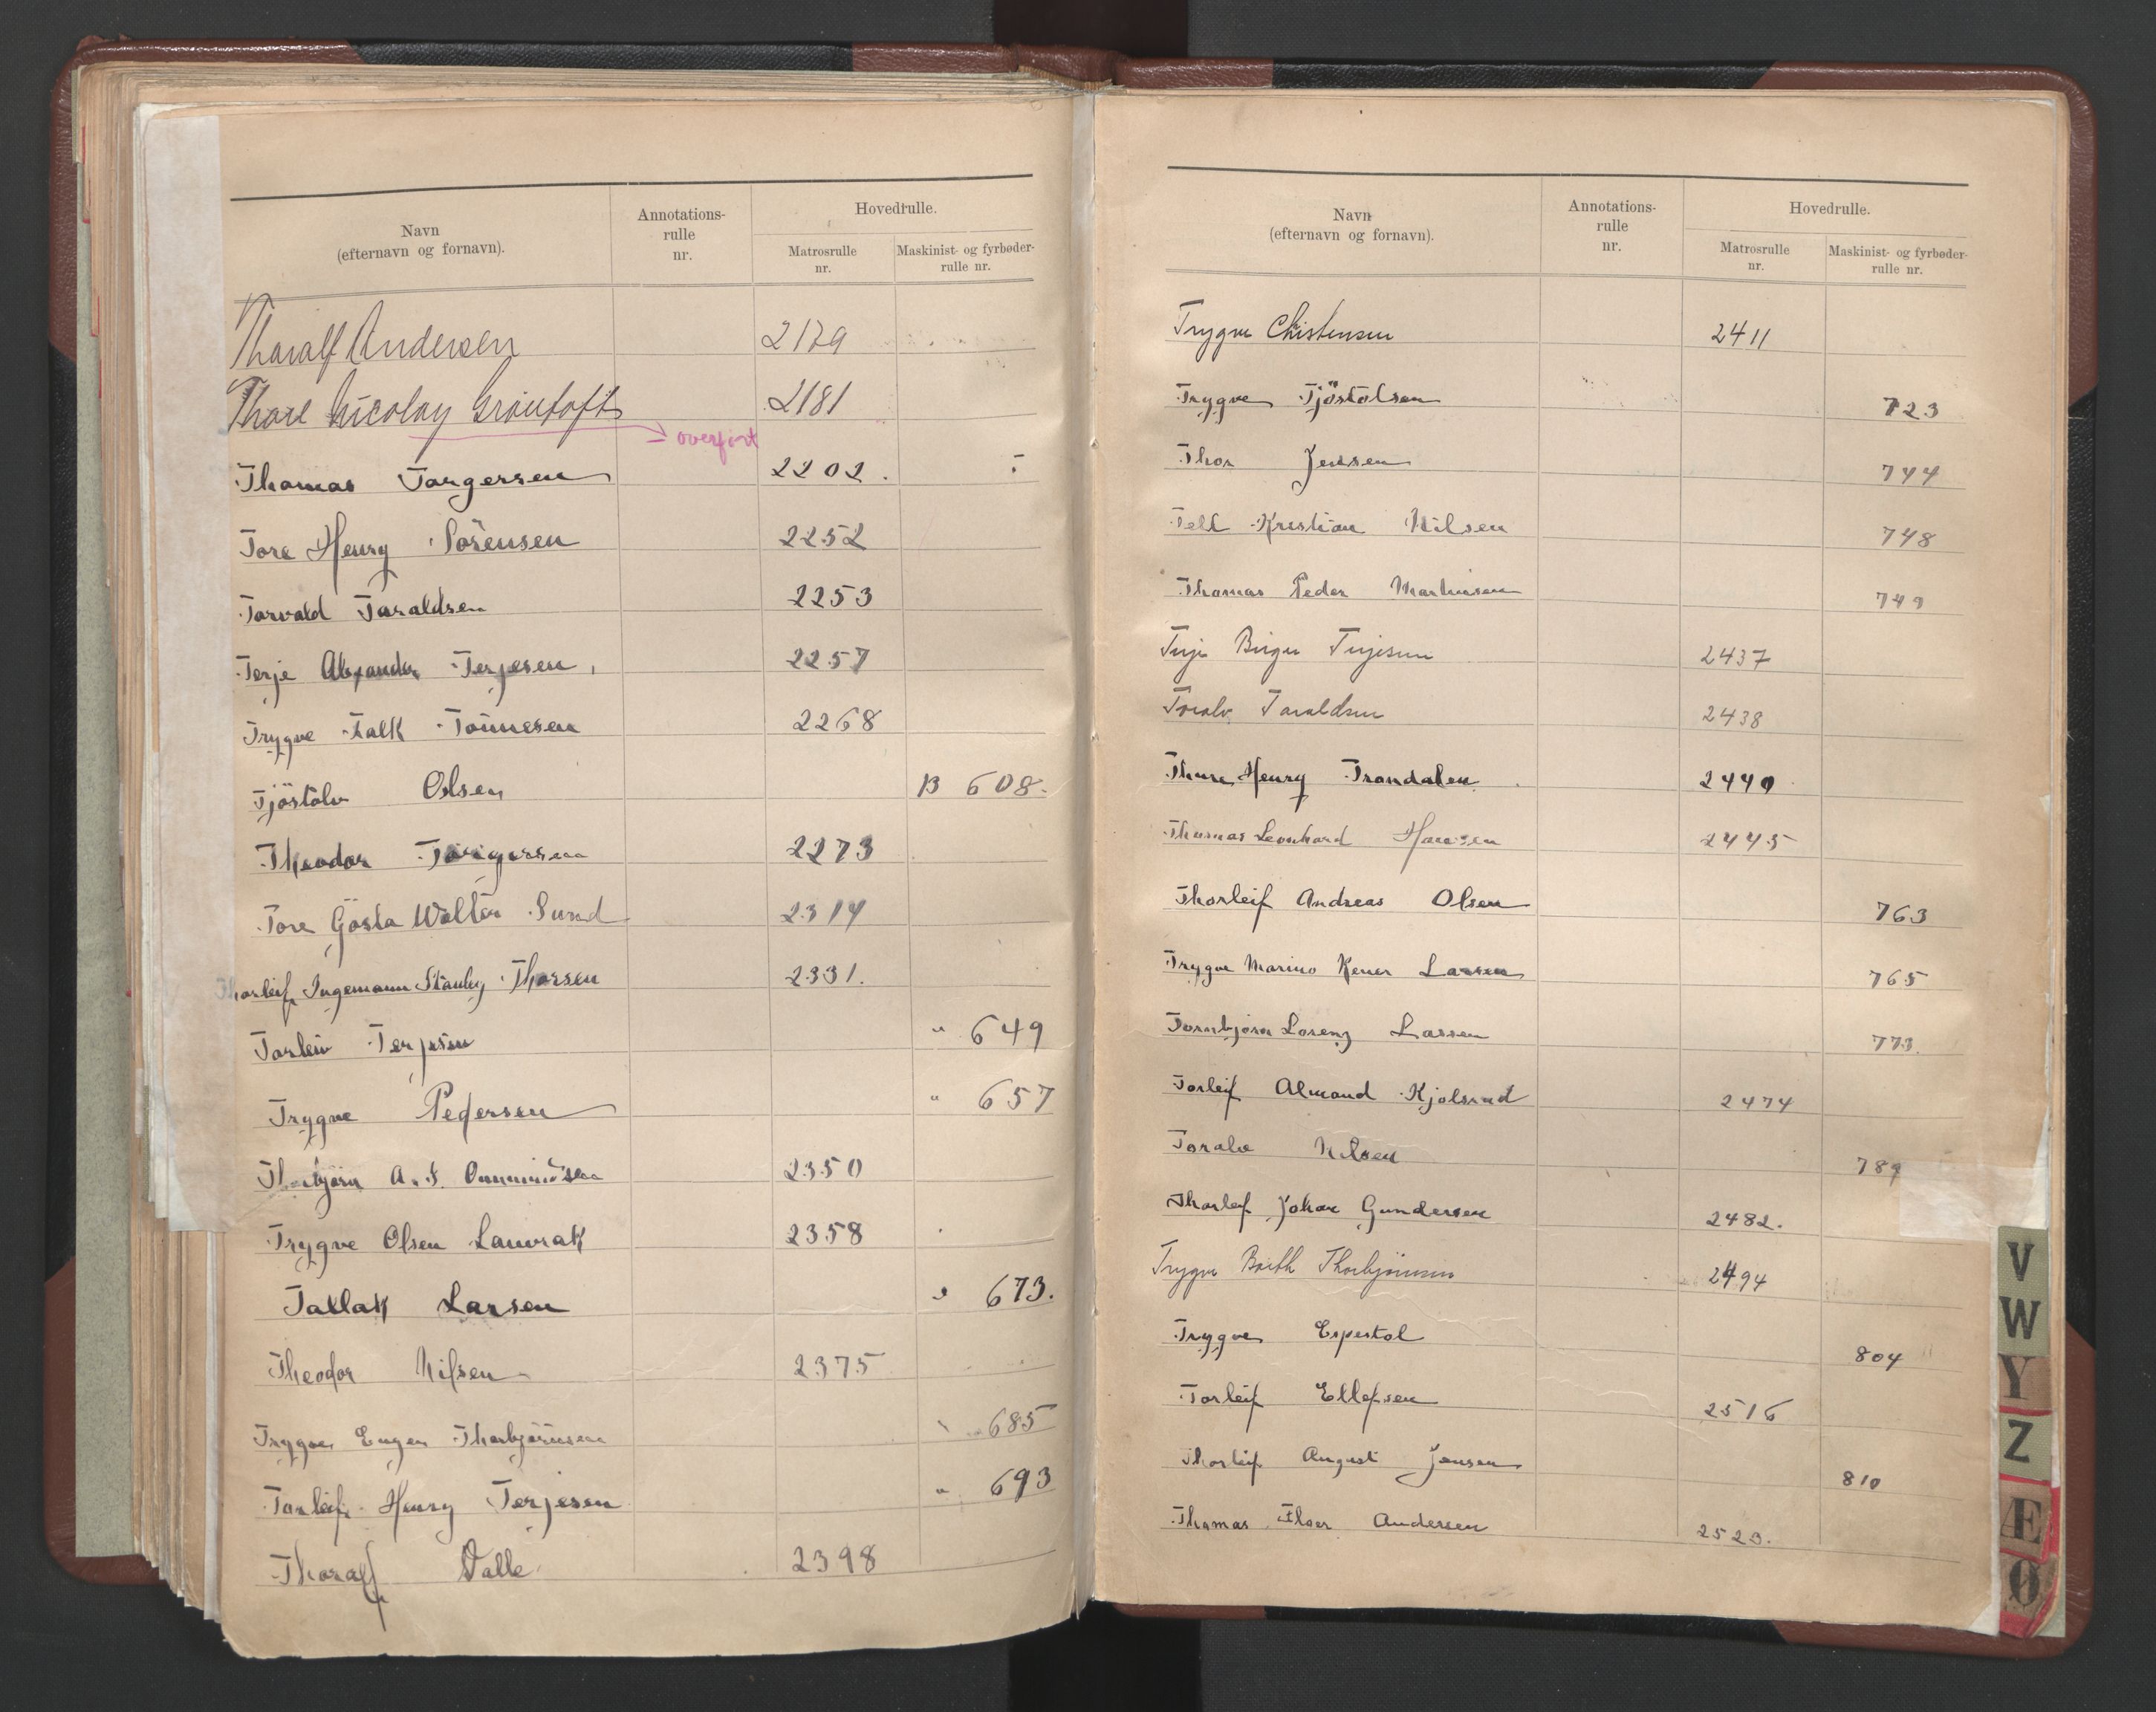 Navn
(efternavn og fornavn).
Annotations-
rulle
nr.
Hovedrulle.
Matrosrulle
nr.
Maskinist- og fyrbøder-
rulle nr.
Tharalf Andersen 2179
Thore Nicolay Gröntoft 2181
overført
Thomas Torgersen 2202.
Tore Henry Sörensen 2252
Torvald Taraldsen 2253
Terje Alexander Terjesen 2257
Trygve Falk Tönnesen 2268
Tjöstolv Olsen B 608.
Theodor Törgersen 2273
Tore Gösta Walter Sund 2314
Thorleif Ingemann Stanley Thorsen 2331.
Torleiv Terjesen " 649
Trygve Pedersen " 657
Thorbjörn A. F. 2350
Trygve Olsen Lauvrak 2358
Tallak Larsen " 673.
Theodor Nilsen 2375
Trygve Eugen Thorbjörnsen " 685
Torleif Henry Terjesen " 693
Thoralf Valle 2398
Navn
(efternavn og fornavn).
Annotations-
rulle
nr.
Hovedrulle.
Matrosrulle
nr.
Maskinist- og fyrbøder-
rulle nr.
Trygve Christensen 2411
Trygve Tjöstolsen 723
Thor Jensen 744
Tell Kristian Nilsen 748
Thomas Peder Martinsen 749
Terje Birger Terjesen 2437
Toralv Taraldsen 2438
Thure Henry Trondalen 2440
Thomas Leonhard Hansen 2445
Thorleif Andreas Olsen 763
Trygve Marino Larsen 765
Tornbjörn Lorenz Larsen 773.
Torleif Almand Kjolsrud 2474
Toralv Nilsen 789
Thorleif Johan Gundersen 2482.
Trygve Barth Thorbjörnsen 2494
Trygve Espestöl 804
Torleif Ellefsen 2516
Thorleif August Jensen 810
Thomas Andersen 2523.
V
W
Y
Z
Æ
Ø